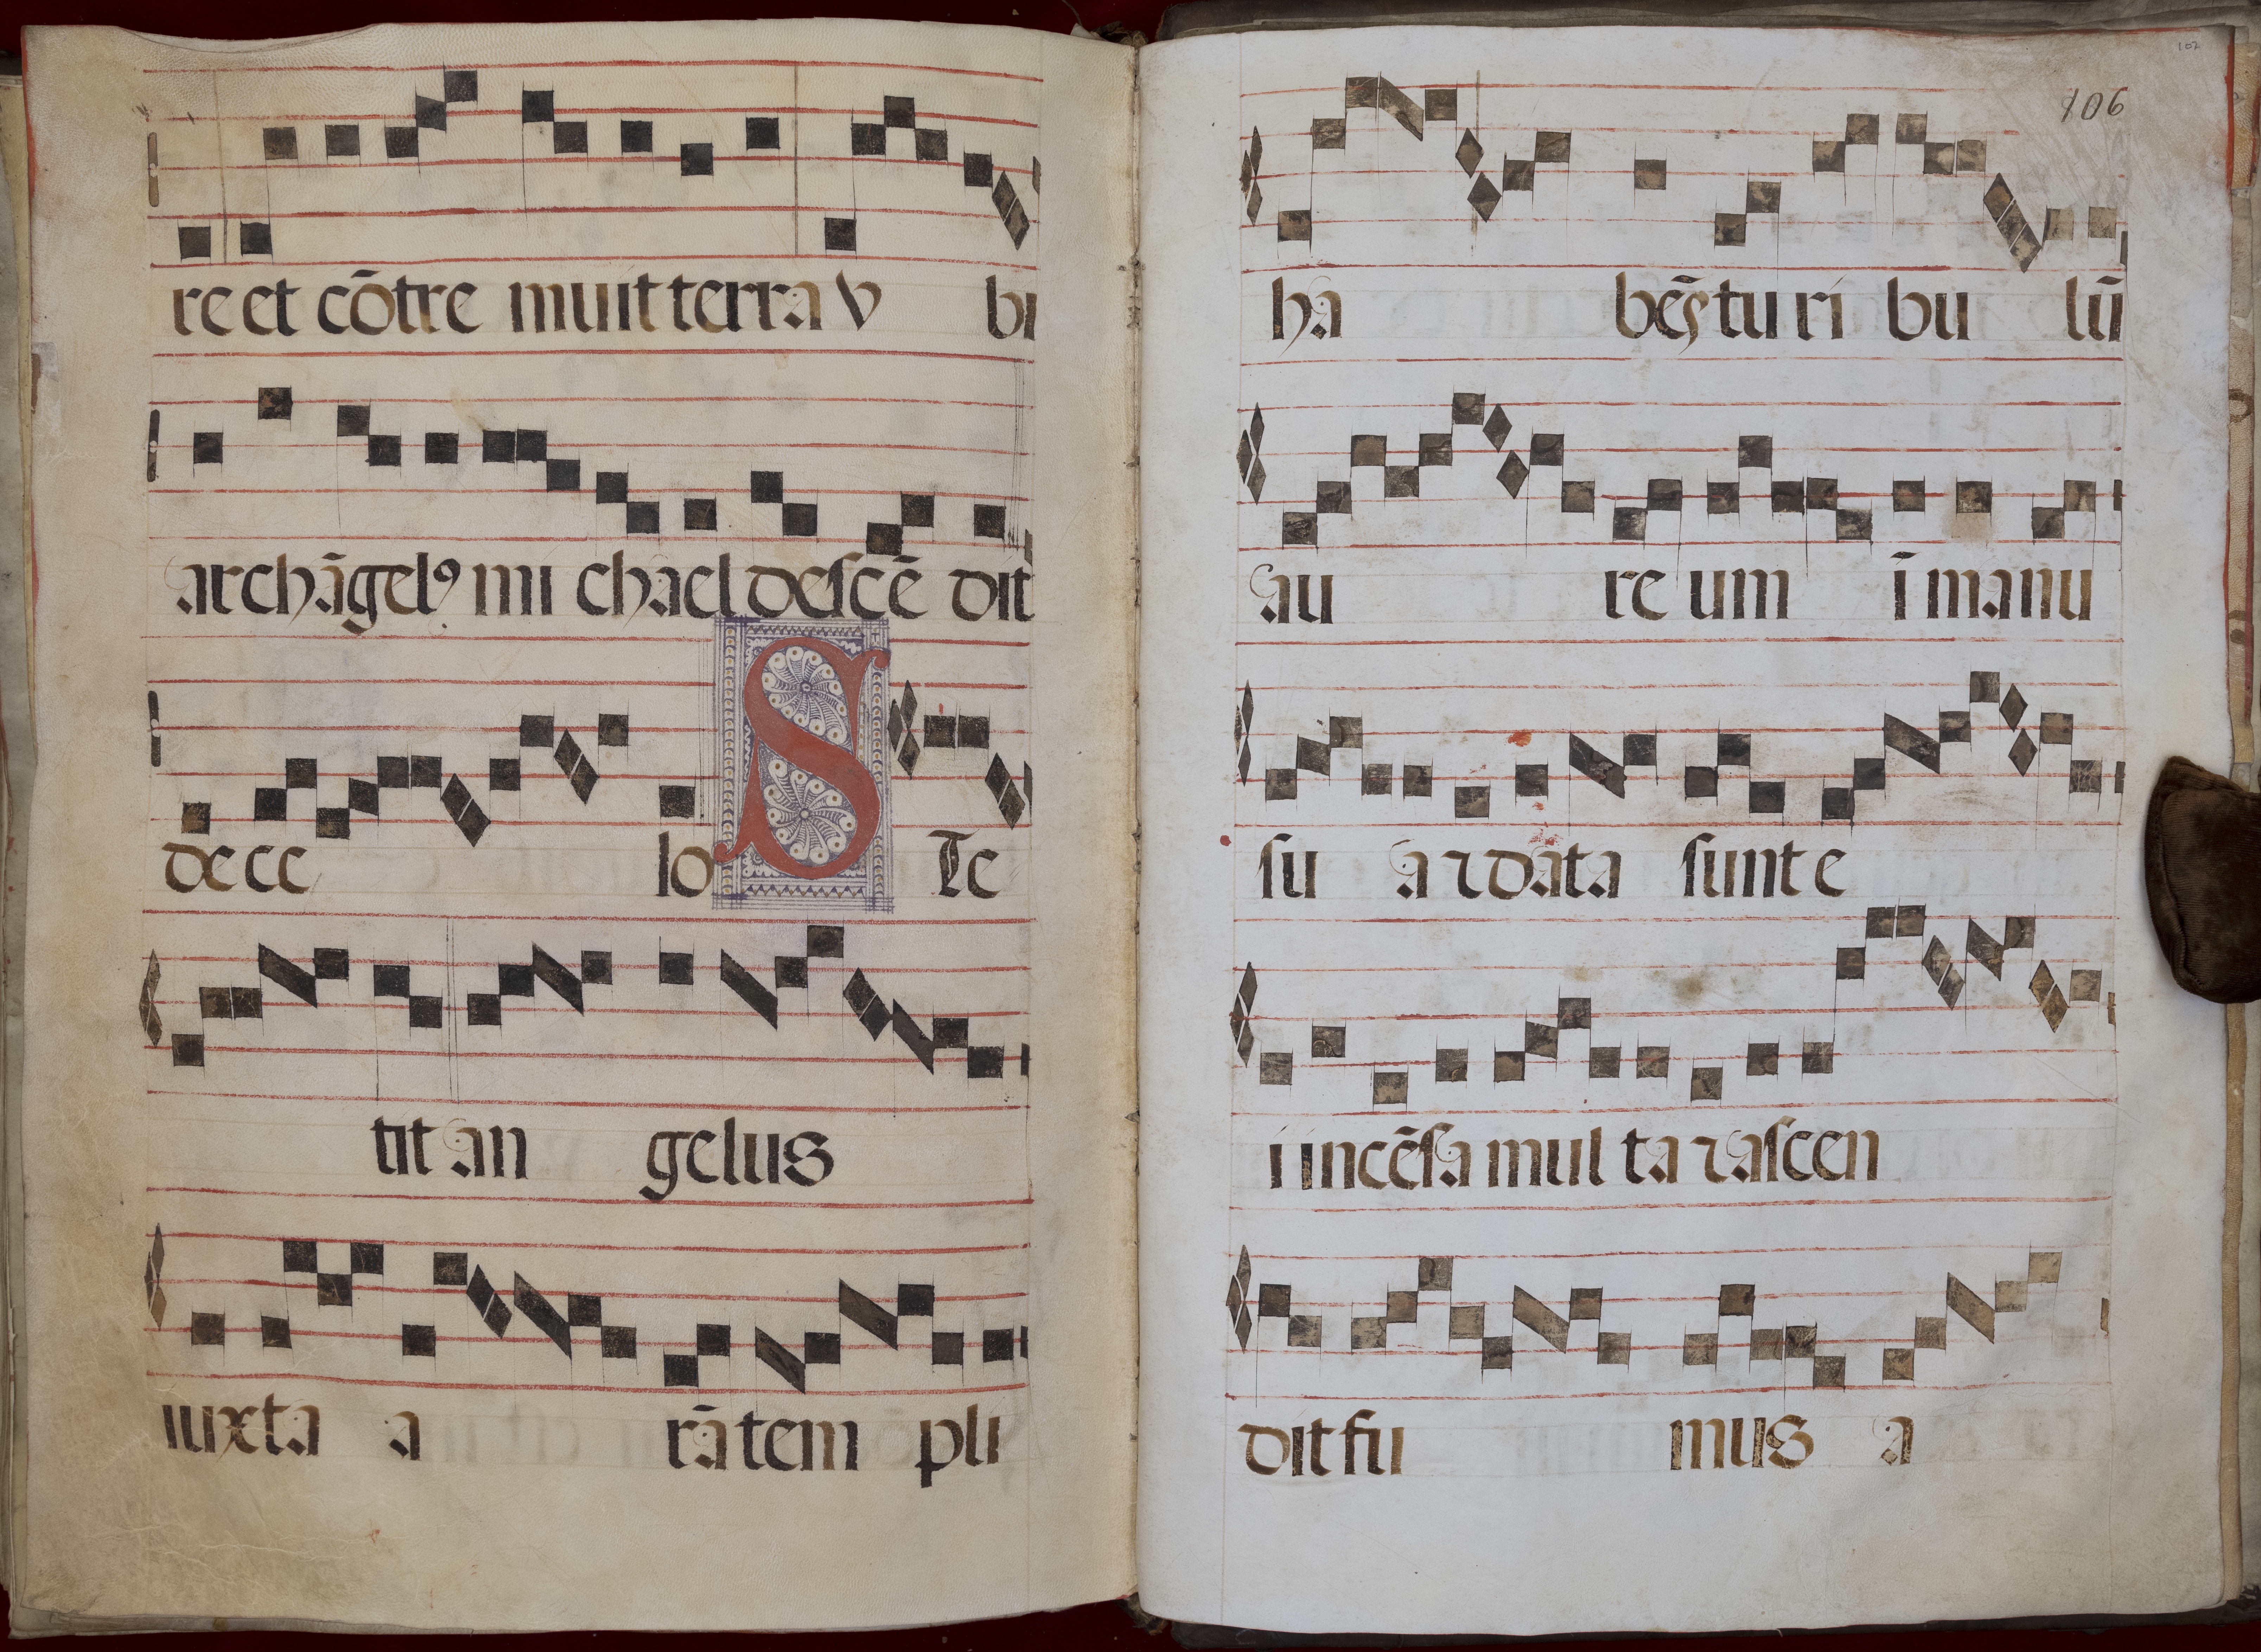 re et cōtre muit terra v bi
archāgelꝰ mi chael descē dit
de ce lo S Te
tit an gelus
iuxta a rā tem pli
102
106
ha bēs tu ri bu lū
au re um ī manu
su a ⁊ data sunt e
i incēsa mul ta ⁊ ascen
dit fu mus a